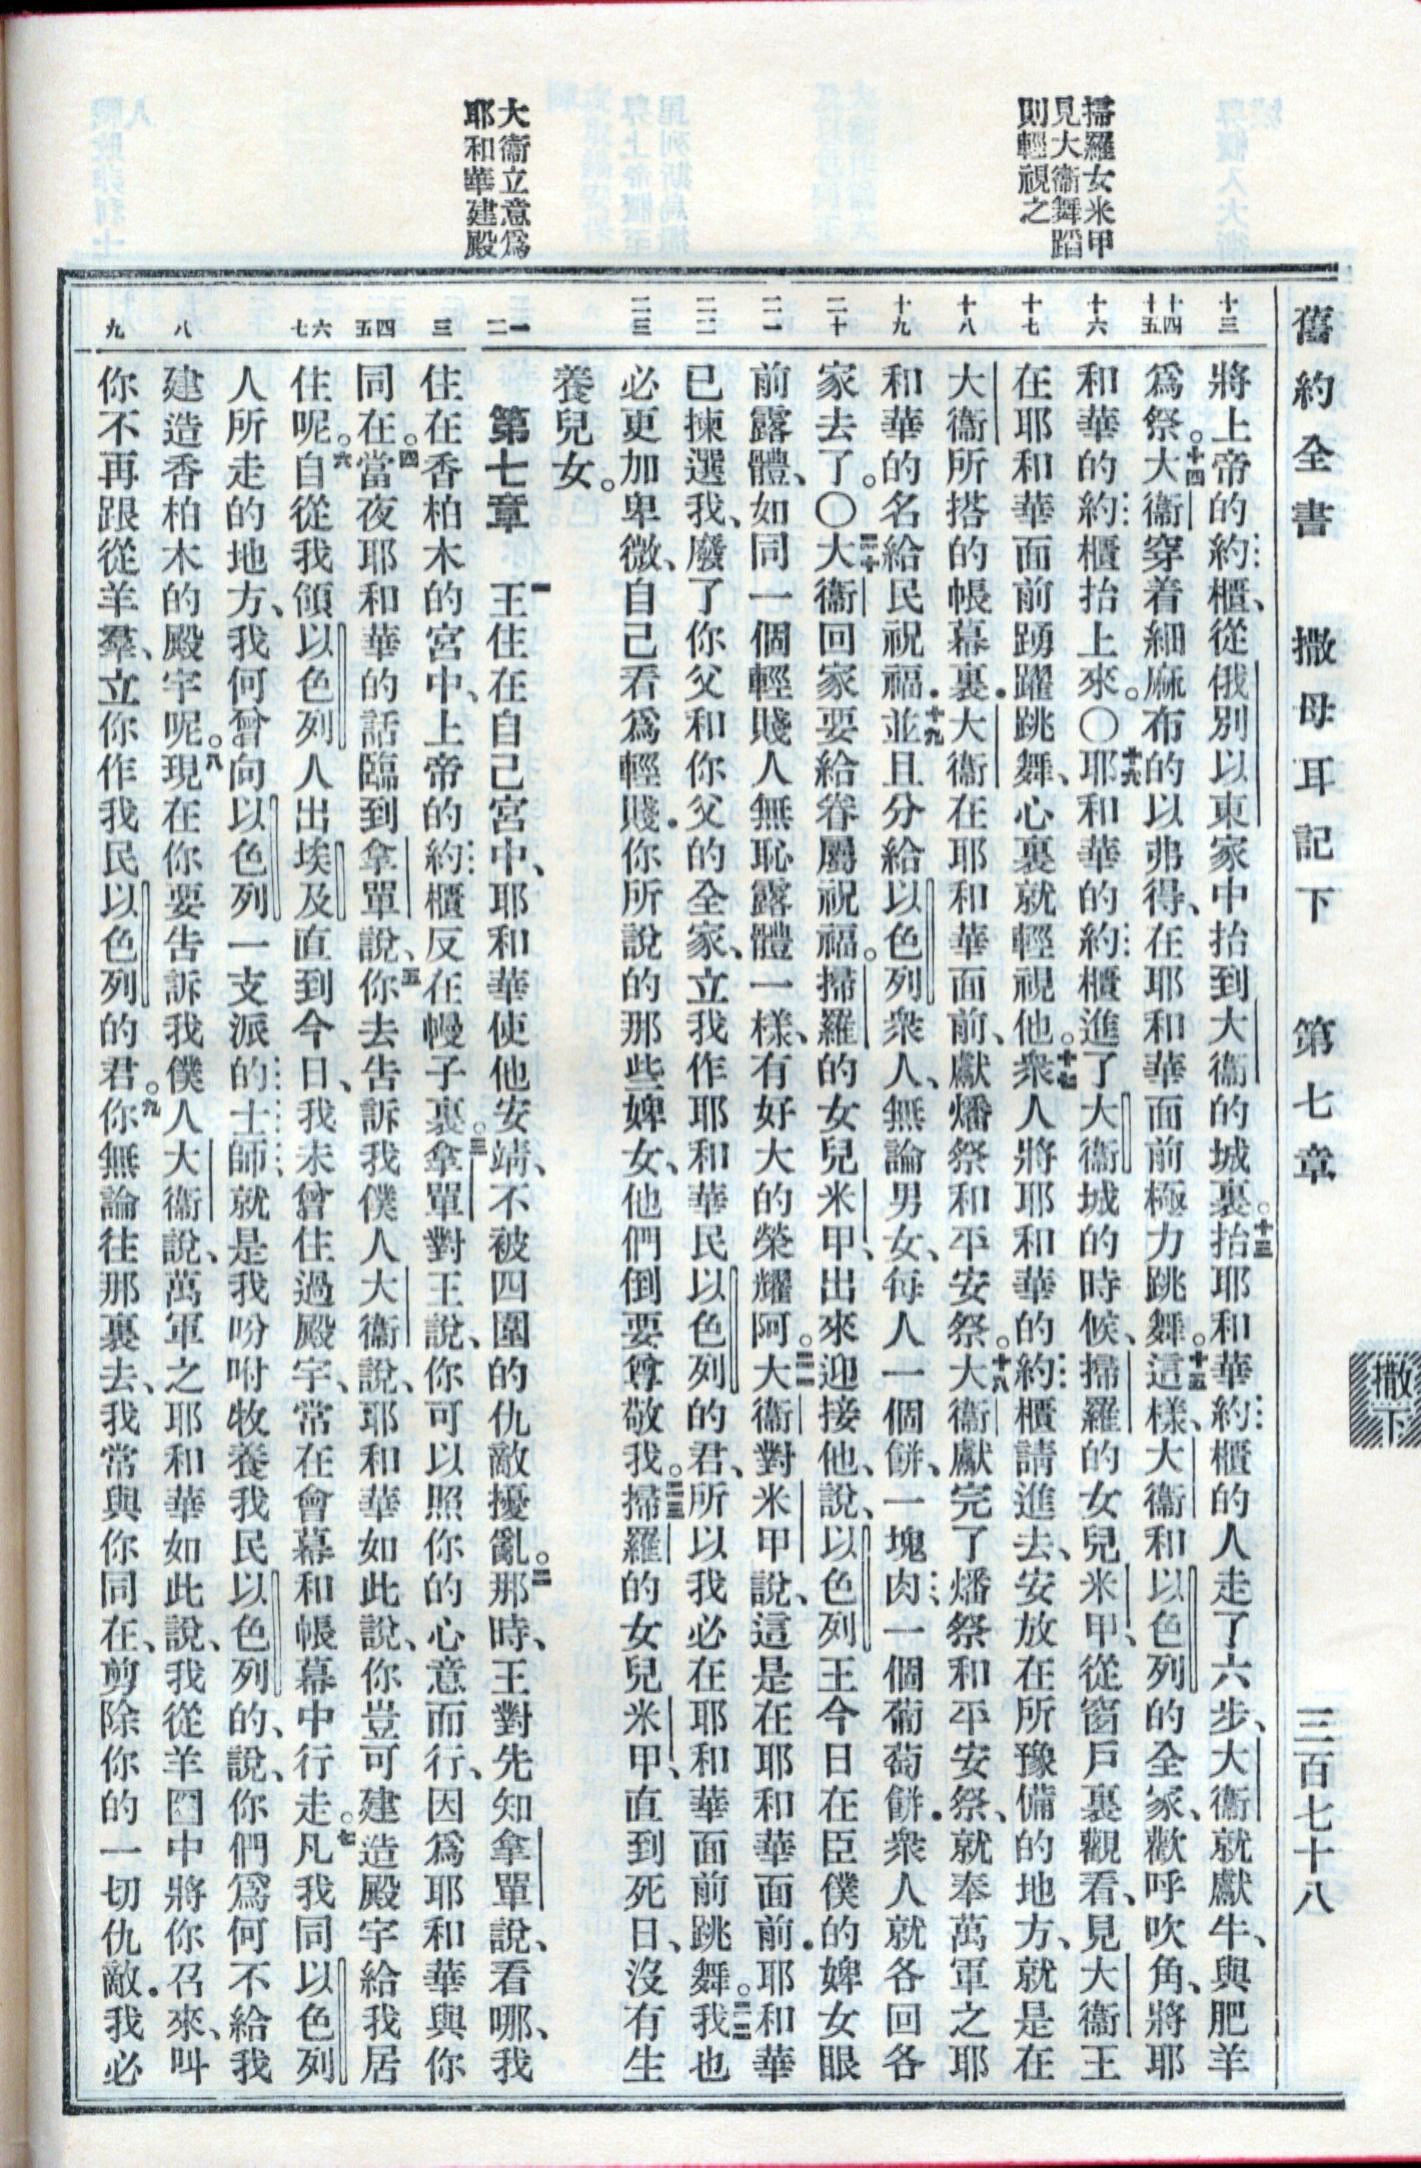 舊約全書　撒母耳記下　第七章　三百七十八
撒下
掃羅女米甲
見大衞舞蹈
則輕視之
大衞立意爲
耶和華建殿
十三
十四
十五
十六
十七
十八
十九
二十
二一
二二
二三
一
二
三
四
五
六
七
八
九
將上帝的約櫃、從俄別以東家中抬到大衞的城裏。十三抬耶和華約櫃的人走了六步、大衞就獻牛、與肥羊
爲祭。十四大衞穿着細麻布的以弗得、在耶和華面前極力跳舞。十五這樣、大衞和以色列的全家、歡呼吹角、將耶
和華的約櫃抬上來。〇十六耶和華的約櫃進了大衞城的時候、掃羅的女兒米甲、從窗戶裏觀看、見大衞王
在耶和華面前踴躍跳舞、心裏就輕視他。十七衆人將耶和華的約櫃請進去、安放在所豫備的地方、就是在
大衞所搭的帳幕裏．大衞在耶和華面前、獻燔祭和平安祭。十八大衞獻完了燔祭和平安祭、就奉萬軍之耶
和華的名給民祝福．十九並且分給以色列衆人、無論男女、每人一個餅、一塊肉、一個葡萄餅．衆人就各回各
家去了。〇二十大衞回家要給眷屬祝福。掃羅的女兒米甲、出來迎接他、說、以色列王今日在臣僕的婢女眼
前露體、如同一個輕賤人無恥露體一樣、有好大的榮耀阿。二一大衞對米甲說、這是在耶和華面前．耶和華
已揀選我、廢了你父和你父的全家、立我作耶和華民以色列的君、所以我必在耶和華面前跳舞。二二我也
必更加卑微、自己看爲輕賤．你所說的那些婢女、他們倒要尊敬我。二三掃羅的女兒米甲、直到死日、沒有生
養兒女。
第七章　一王住在自己宮中、耶和華使他安靖、不被四圍的仇敵擾亂。二那時、王對先知拿單說、看哪、我
住在香柏木的宮中、上帝的約櫃反在幔子裏。三拿單對王說、你可以照你的心意而行、因爲耶和華與你
同在。四當夜耶和華的話臨到拿單說、五你去告訴我僕人大衞說、耶和華如此說、你豈可建造殿宇給我居
住呢。六自從我領以色列人出埃及直到今日、我未曾住過殿宇、常在會幕和帳幕中行走。七凡我同以色列
人所走的地方、我何曾向以色列一支派的士師、就是我吩咐牧養我民以色列的、說、你們爲何不給我
建造香柏木的殿宇呢。八現在你要告訴我僕人大衞說、萬軍之耶和華如此說、我從羊圈中將你召來、叫
你不再跟從羊羣、立你作我民以色列的君。九你無論往那裏去、我常與你同在、剪除你的一切仇敵．我必